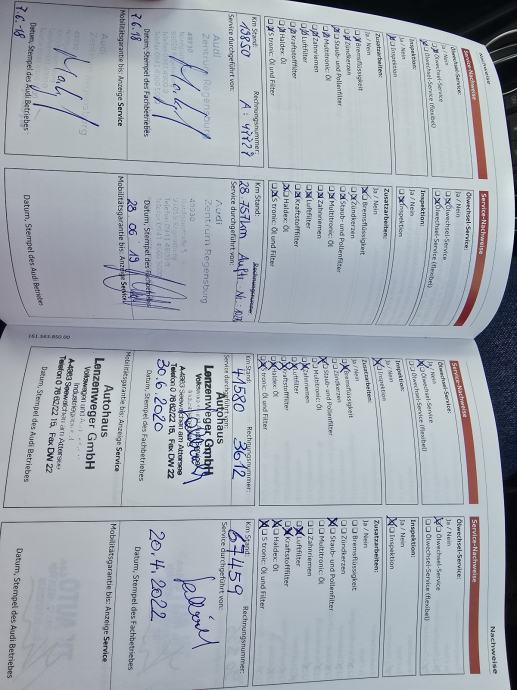 Nachweise
Service-Nachweise
Ölwechsel-Service:
Ja / Nein
Ölwechsel-Service
Ölwechsel-Service (flexibel)
Inspektion:
Ja / Nein
Inspektion
Zusatzarbeiten:
Ja / Nein
Bremsflüssigkeit
Zündkerzen
Staub- und Pollenfilter
Multitronic: Öl
Zahnriemen
Luftfilter
Kraftstofffilter
Haldex: Öl
S tronic: Öl und Filter
Km Stand: Rechnungsnummer:
13850
Service durchgeführt von:
Audi
Zentrum Regensburg
7.6.18
Datum, Stempel des Fachbetriebes
Mobilitätsgarantie bis: Anzeige Service
7.6.18
Datum, Stempel des Audi Betriebes
Service-Nachweise
Ölwechsel-Service:
Ja / Nein
Ölwechsel-Service
Ölwechsel-Service (flexibel)
Inspektion:
Ja / Nein
Inspektion
Zusatzarbeiten:
Ja / Nein
Bremsflüssigkeit
Zündkerzen
Staub- und Pollenfilter
Multitronic: Öl
Zahnriemen
Luftfilter
Kraftstofffilter
Haldex: Öl
S tronic: Öl und Filter
Km Stand: Rechnungsnummer:
28.757km
Service durchgeführt von:
Audi
Zentrum Regensburg
49530
Datum, Stempel des Fachbetriebes
28 06 19
Mobilitätsgarantie bis: Anzeige Service
Datum, Stempel des Audi Betriebes
161.563.850.00
Service-Nachweise
Ölwechsel-Service:
Ja / Nein
Ölwechsel-Service
Ölwechsel-Service (flexibel)
Inspektion:
Ja / Nein
Inspektion
Zusatzarbeiten:
Ja / Nein
Bremsflüssigkeit
Zündkerzen
Staub- und Pollenfilter
Multitronic: Öl
Zahnriemen
Luftfilter
Kraftstofffilter
Haldex: Öl
S tronic: Öl und Filter
Km Stand: Rechnungsnummer:
41580 3612
Service durchgeführt von:
Autohaus
Lanzenweger GmbH
Telefon 0 76 62/22 15, Fax DW 22
30.6.2020
Datum, Stempel des Fachbetriebes
Mobilitätsgarantie bis: Anzeige Service
Autohaus
Lanzenweger GmbH
Telefon 0 76 62/22 15, Fax DW 22
Datum, Stempel des Audi Betriebes
Nachweise
Service-Nachweise
Ölwechsel-Service:
Ja / Nein
Ölwechsel-Service
Ölwechsel-Service (flexibel)
Inspektion:
Ja / Nein
Inspektion
Zusatzarbeiten:
Ja / Nein
Bremsflüssigkeit
Zündkerzen
Staub- und Pollenfilter
Multitronic: Öl
Zahnriemen
Luftfilter
Kraftstofffilter
Haldex: Öl
S tronic: Öl und Filter
Km Stand: Rechnungsnummer:
67459
Service durchgeführt von:
20.4.2022
Datum, Stempel des Fachbetriebes
Mobilitätsgarantie bis: Anzeige Service
Datum, Stempel des Audi Betriebes